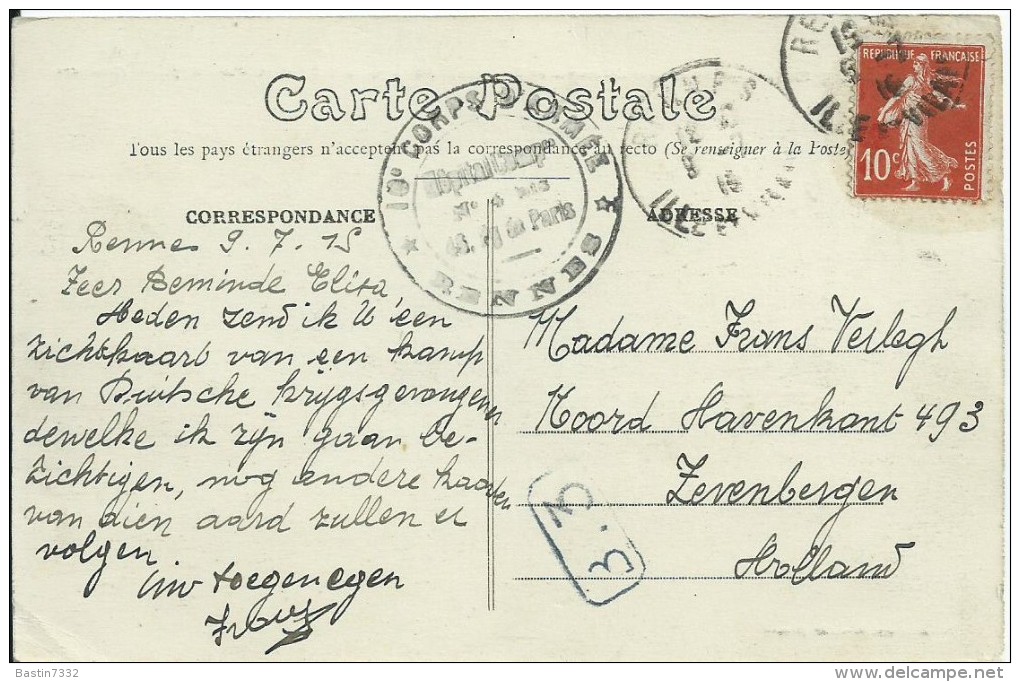 Carte Postale
Tous les pays étrangers n'acceptent pas la correspondance au recto (Se renseigner à la Poste)
CORRESPONDANCE
ADRESSE
REPUBLIQUE FRANÇAISE
10c
POSTES
10e CORPS D'ARMÉE
Hôpital
de Paris
RENNES
RENNES
ILLE ET VILAINE
ILLE
VILAINE
Rennes 9.7.15
Zeer Beminde Elisa
Heden zend ik U een
zichtkaart van een kamp
van Duitsche krijgsgevangenen
dewelke ik zijn gaan be-
zichtigen, nog andere kaarten
van dien aard zullen er
volgen
Uw toegenegen
Madame Frans Verlegh
Noord Havenkant 493
Zevenbergen
Holland
B.3
Bastin7332
delcampe.net